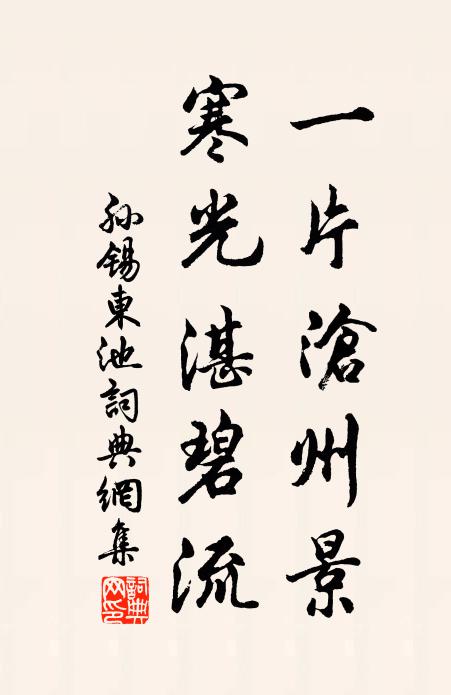 一片滄州景
寒光湛碧流
孙錫東池詞典網集
詞典网印